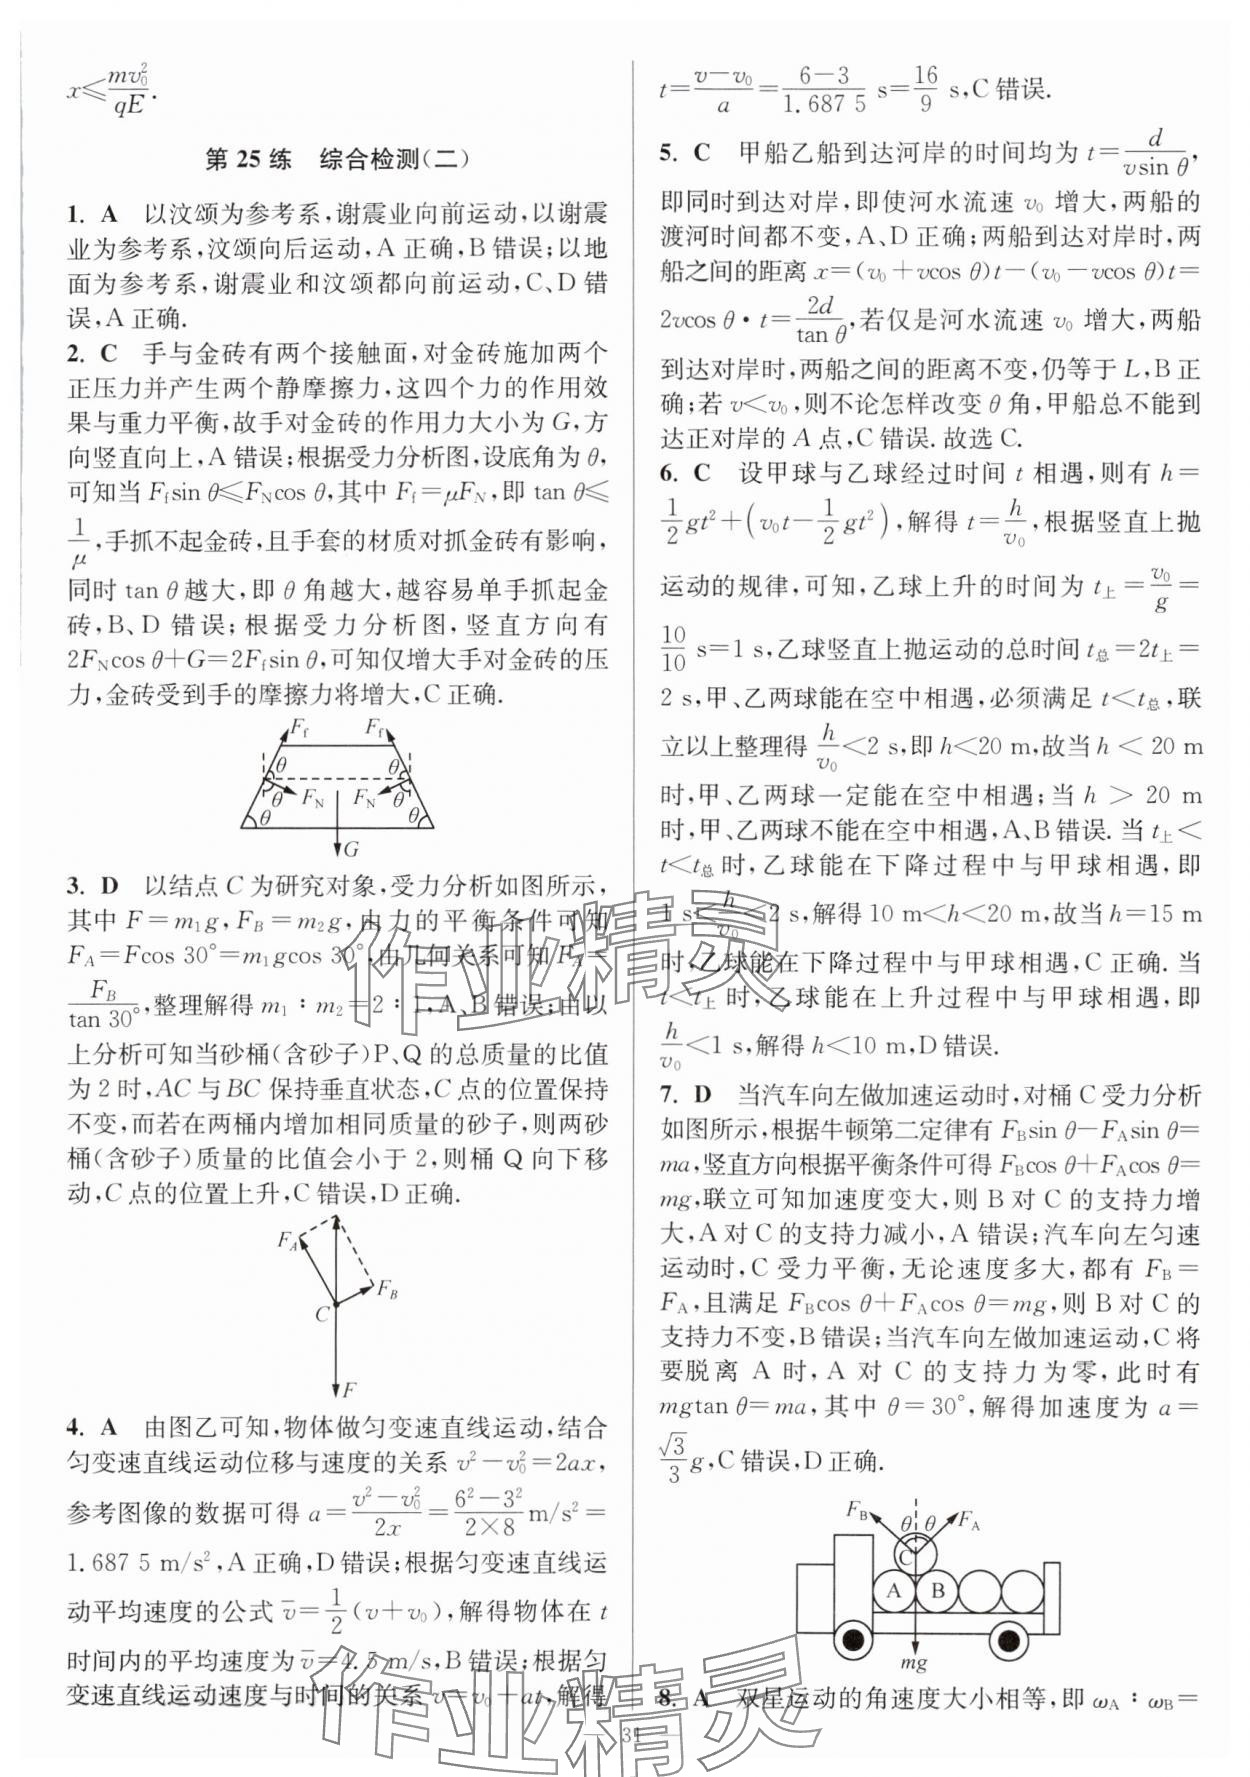 x≤mv₀²/qE.
第 25 练　综合检测(二)
1. A　以汶颂为参考系,谢震业向前运动,以谢震
业为参考系,汶颂向后运动,A 正确,B 错误;以地
面为参考系,谢震业和汶颂都向前运动,C、D 错
误,A 正确.
2. C　手与金砖有两个接触面,对金砖施加两个
正压力并产生两个静摩擦力,这四个力的作用效
果与重力平衡,故手对金砖的作用力大小为 G,方
向竖直向上,A 错误;根据受力分析图,设底角为 θ,
可知当 Ffsin θ≤FNcos θ,其中 Ff=μFN,即 tan θ≤
1/μ,手抓不起金砖,且手套的材质对抓金砖有影响,
同时 tan θ 越大,即 θ 角越大,越容易单手抓起金
砖,B、D 错误;根据受力分析图,竖直方向有
2FNcos θ+G=2Ffsin θ,可知仅增大手对金砖的压
力,金砖受到手的摩擦力将增大,C 正确.
Ff Ff
θ θ
FN FN
θ θ
θ θ
G
3. D　以结点 C 为研究对象,受力分析如图所示,
其中 F=m₁g,FB=m₂g,由力的平衡条件可知
FA=Fcos 30°=m₁gcos 30°,由几何关系可知 FA=
FB/tan 30°,整理解得 m₁∶m₂=2∶1,A、B 错误;由以
上分析可知当砂桶(含砂子)P、Q 的总质量的比值
为 2 时,AC 与 BC 保持垂直状态,C 点的位置保持
不变,而若在两桶内增加相同质量的砂子,则两砂
桶(含砂子)质量的比值会小于 2,则桶 Q 向下移
动,C 点的位置上升,C 错误,D 正确.
FA
FB
C
F
4. A　由图乙可知,物体做匀变速直线运动,结合
匀变速直线运动位移与速度的关系 v²-v₀²=2ax,
参考图像的数据可得 a=(v²-v₀²)/2x=(6²-3²)/(2×8) m/s²=
1.687 5 m/s²,A 正确,D 错误;根据匀变速直线运
动平均速度的公式 v̄=1/2(v+v₀),解得物体在 t
时间内的平均速度为 v̄=4.5 m/s,B 错误;根据匀
变速直线运动速度与时间的关系 v=v₀+at,解得
t=(v-v₀)/a=(6-3)/1.687 5 s=16/9 s,C 错误.
5. C　甲船乙船到达河岸的时间均为 t=d/(vsin θ),
即同时到达对岸,即使河水流速 v₀ 增大,两船的
渡河时间都不变,A、D 正确;两船到达对岸时,两
船之间的距离 x=(v₀+vcos θ)t-(v₀-vcos θ)t=
2vcos θ·t=2d/tan θ,若仅是河水流速 v₀ 增大,两船
到达对岸时,两船之间的距离不变,仍等于 L,B 正
确;若 v<v₀,则不论怎样改变 θ 角,甲船总不能到
达正对岸的 A 点,C 错误.故选 C.
6. C　设甲球与乙球经过时间 t 相遇,则有 h=
1/2gt²+(v₀t-1/2gt²),解得 t=h/v₀,根据竖直上抛
运动的规律,可知,乙球上升的时间为 t上=v₀/g=
10/10 s=1 s,乙球竖直上抛运动的总时间 t总=2t上=
2 s,甲、乙两球能在空中相遇,必须满足 t<t总,联
立以上整理得 h/v₀<2 s,即 h<20 m,故当 h < 20 m
时,甲、乙两球一定能在空中相遇;当 h > 20 m
时,甲、乙两球不能在空中相遇,A、B 错误.当 t上<
t<t总 时,乙球能在下降过程中与甲球相遇,即
1 s<h/v₀<2 s,解得 10 m<h<20 m,故当 h=15 m
时,乙球能在下降过程中与甲球相遇,C 正确.当
t<t上 时,乙球能在上升过程中与甲球相遇,即
h/v₀<1 s,解得 h<10 m,D 错误.
7. D　当汽车向左做加速运动时,对桶 C 受力分析
如图所示,根据牛顿第二定律有 FBsin θ-FAsin θ=
ma,竖直方向根据平衡条件可得 FBcos θ+FAcos θ=
mg,联立可知加速度变大,则 B 对 C 的支持力增
大,A 对 C 的支持力减小,A 错误;汽车向左匀速
运动时,C 受力平衡,无论速度多大,都有 FB=
FA,且满足 FBcos θ+FAcos θ=mg,则 B 对 C 的
支持力不变,B 错误;当汽车向左做加速运动,C 将
要脱离 A 时,A 对 C 的支持力为零,此时有
mgtan θ=ma,其中 θ=30°,解得加速度为 a=
√3/3 g,C 错误,D 正确.
FB FA
θ θ
C
A B
mg
8. A　双星运动的角速度大小相等,即 ωA∶ωB=
31
作业精灵
作业精灵